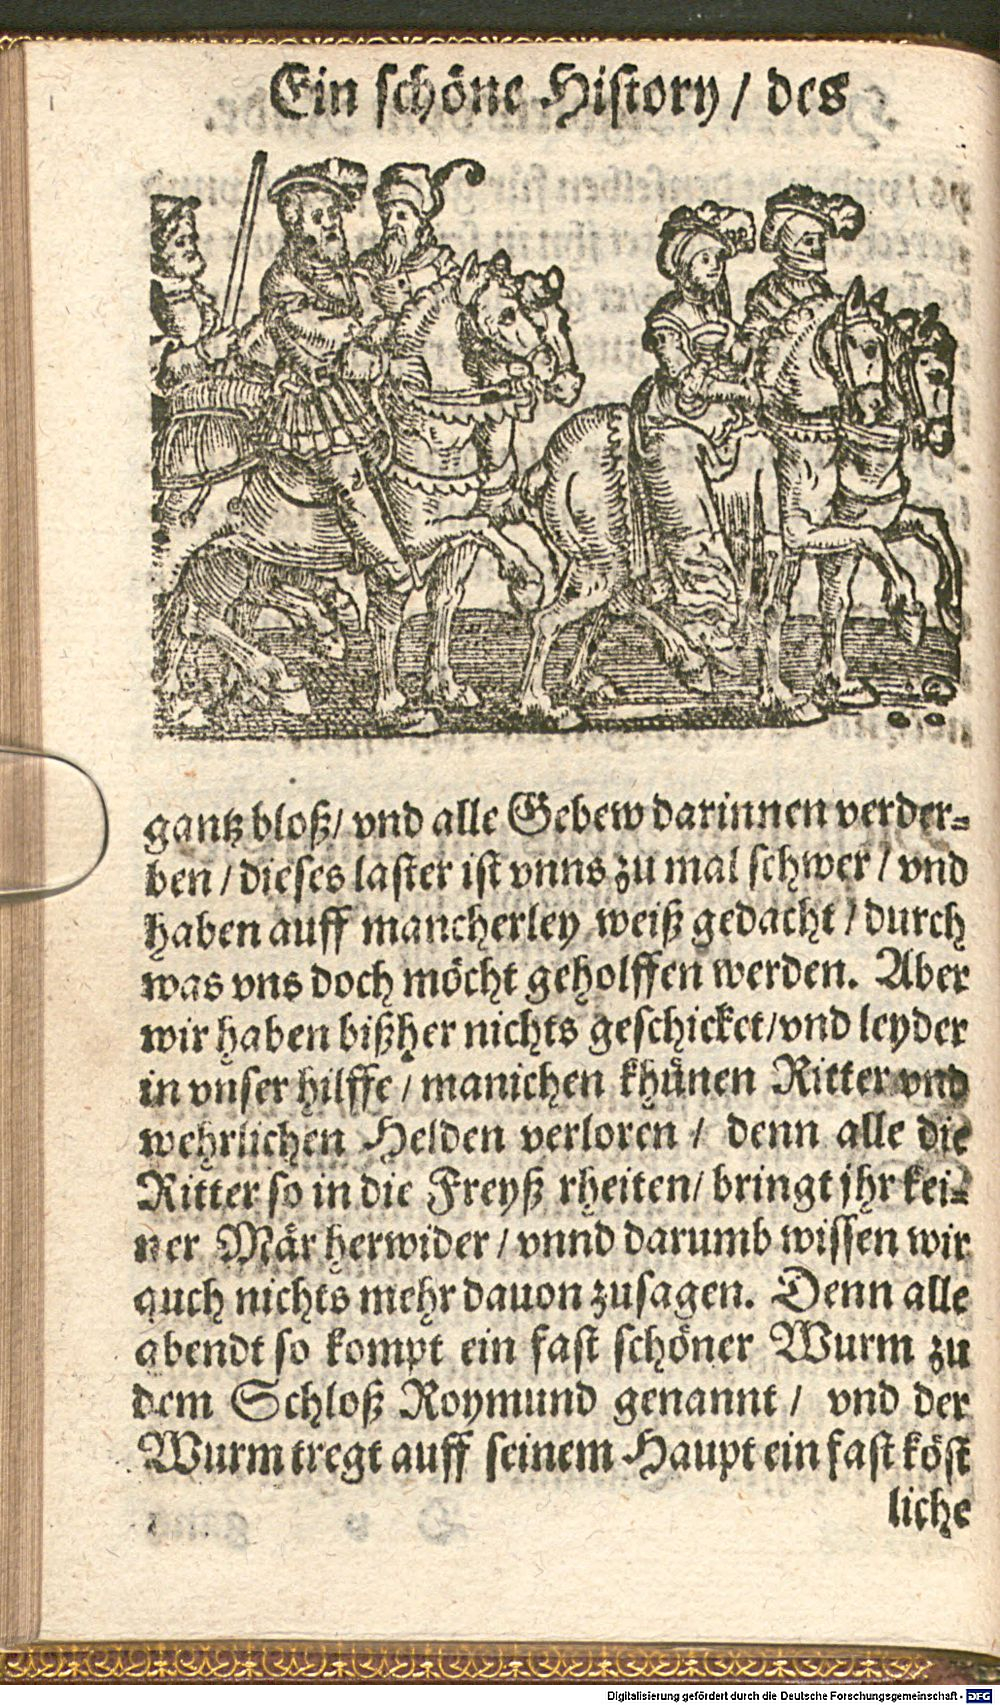 Ein schöne History / des
gantz bloß / vnd alle Gebew darinnen verder-
ben / dieses laster ist vnns zu mal schwer / vnd
haben auff mancherley weiß gedacht / durch
was vns doch möcht geholffen werden. Aber
wir haben bißher nichts geschicket / vnd leyder
in vnser hilffe / manichen khünen Ritter vnd
wehrlichen Helden verloren / denn alle die
Ritter so in die Freyß rheiten / bringt jhr kei-
ner Mär herwider / vnnd darumb wissen wir
auch nichts mehr dauon zusagen. Denn alle
abendt so kompt ein fast schöner Wurm zu
dem Schloß Roymund genannt / vnd der
Wurm tregt auff seinem Haupt ein fast köst
liche
Digitalisierung gefördert durch die Deutsche Forschungsgemeinschaft - DFG